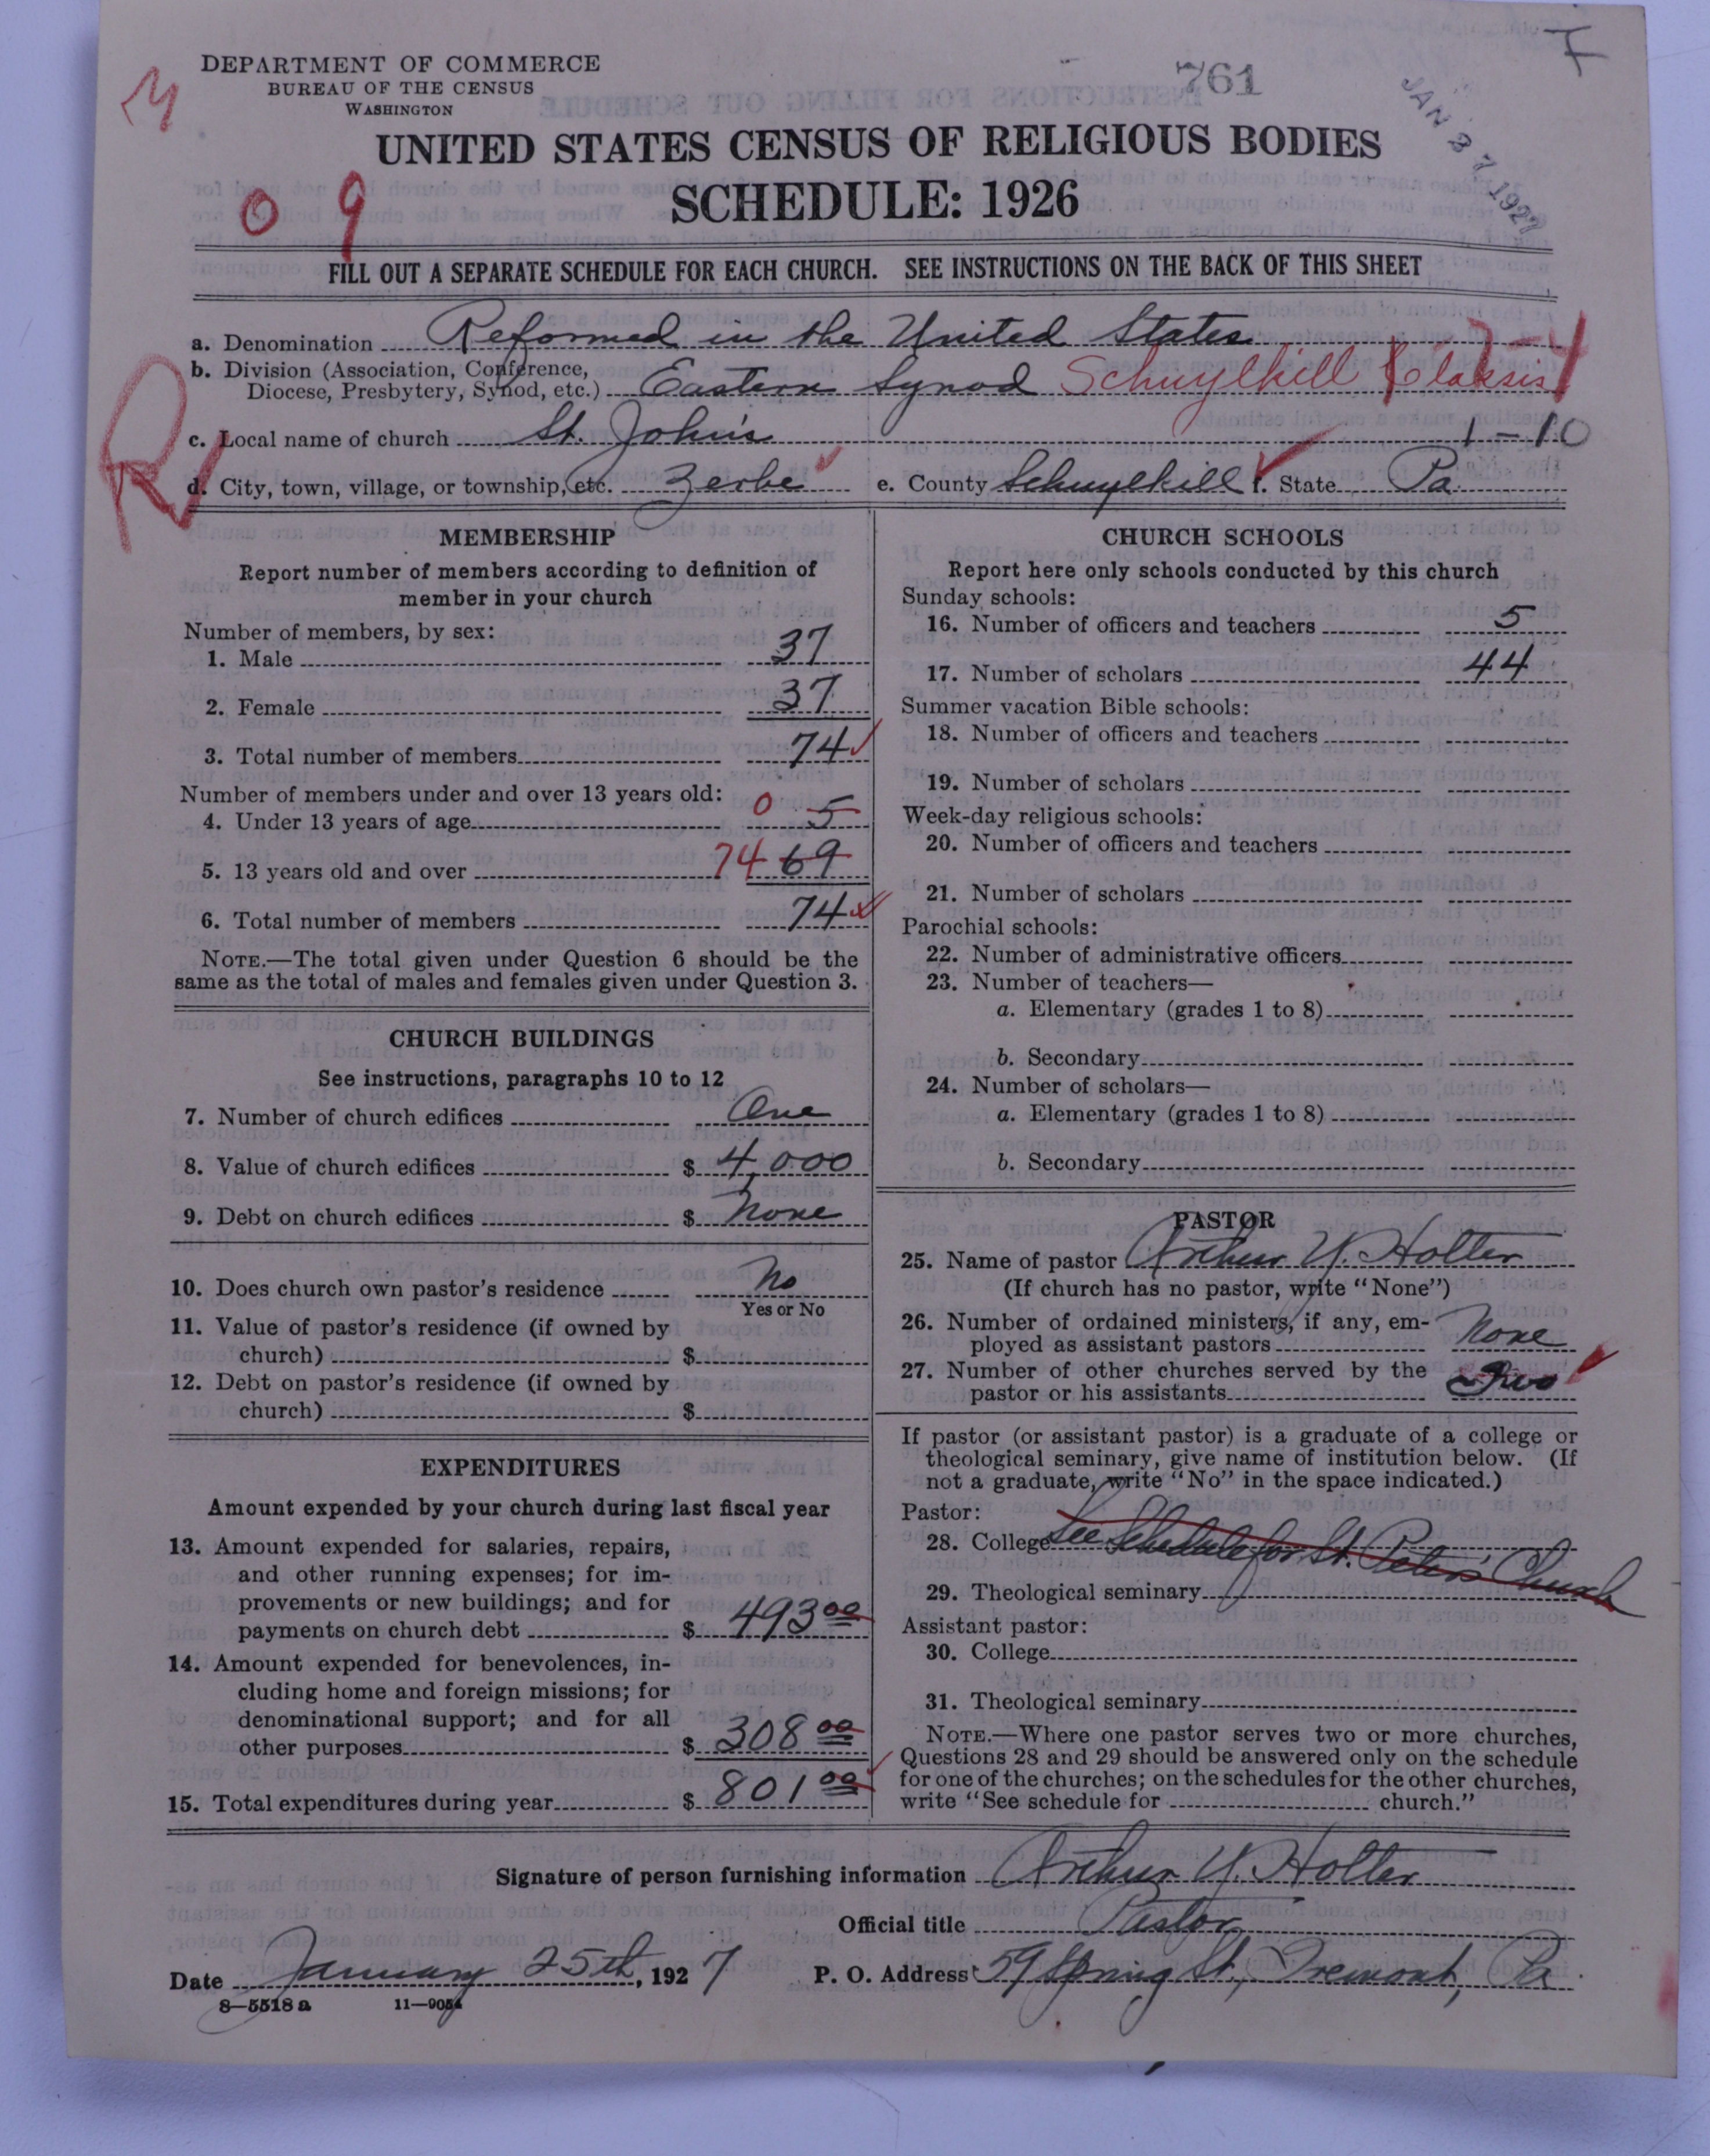 DEPARTMENT OF COMMERCE
BUREAU OF THE CENSUS
WASHINGTON
761
JAN 27 1927
UNITED STATES CENSUS OF RELIGIOUS BODIES
SCHEDULE: 1926
0 9
FILL OUT A SEPARATE SCHEDULE FOR EACH CHURCH. SEE INSTRUCTIONS ON THE BACK OF THIS SHEET
a. Denomination Reformed in the United States
b. Division (Association, Conference,
Diocese, Presbytery, Synod, etc.) Eastern Synod Schuylkill Classis
c. Local name of church St. John's 1-10
d. City, town, village, or township, etc. Zerbe e. County Schuylkill f. State Pa.
MEMBERSHIP
Report number of members according to definition of
member in your church
Number of members, by sex:
1. Male 37
2. Female 37
3. Total number of members 74
Number of members under and over 13 years old:
4. Under 13 years of age 0 5
5. 13 years old and over 74 69
6. Total number of members 74
NOTE.—The total given under Question 6 should be the
same as the total of males and females given under Question 3.
CHURCH BUILDINGS
See instructions, paragraphs 10 to 12
7. Number of church edifices One
8. Value of church edifices $ 4,000
9. Debt on church edifices $ None
10. Does church own pastor's residence No
Yes or No
11. Value of pastor's residence (if owned by
church) $
12. Debt on pastor's residence (if owned by
church) $
EXPENDITURES
Amount expended by your church during last fiscal year
13. Amount expended for salaries, repairs,
and other running expenses; for im-
provements or new buildings; and for
payments on church debt $ 493 00
14. Amount expended for benevolences, in-
cluding home and foreign missions; for
denominational support; and for all
other purposes $ 308 00
15. Total expenditures during year $ 801 00
CHURCH SCHOOLS
Report here only schools conducted by this church
Sunday schools:
16. Number of officers and teachers 5
17. Number of scholars 44
Summer vacation Bible schools:
18. Number of officers and teachers
19. Number of scholars
Week-day religious schools:
20. Number of officers and teachers
21. Number of scholars
Parochial schools:
22. Number of administrative officers
23. Number of teachers—
a. Elementary (grades 1 to 8)
b. Secondary
24. Number of scholars—
a. Elementary (grades 1 to 8)
b. Secondary
PASTOR
25. Name of pastor Arthur Y. Holter
(If church has no pastor, write "None")
26. Number of ordained ministers, if any, em-
ployed as assistant pastors None
27. Number of other churches served by the
pastor or his assistants Two
If pastor (or assistant pastor) is a graduate of a college or
theological seminary, give name of institution below. (If
not a graduate, write "No" in the space indicated.)
Pastor:
28. College See Schedule for St. Peter's Church
29. Theological seminary
Assistant pastor:
30. College
31. Theological seminary
NOTE.—Where one pastor serves two or more churches,
Questions 28 and 29 should be answered only on the schedule
for one of the churches; on the schedules for the other churches,
write "See schedule for church."
Signature of person furnishing information Arthur Y. Holter
Official title Pastor
Date January 25th, 1927 P. O. Address 59 Spring St., Tremont, Pa
8—5518 a 11—9054